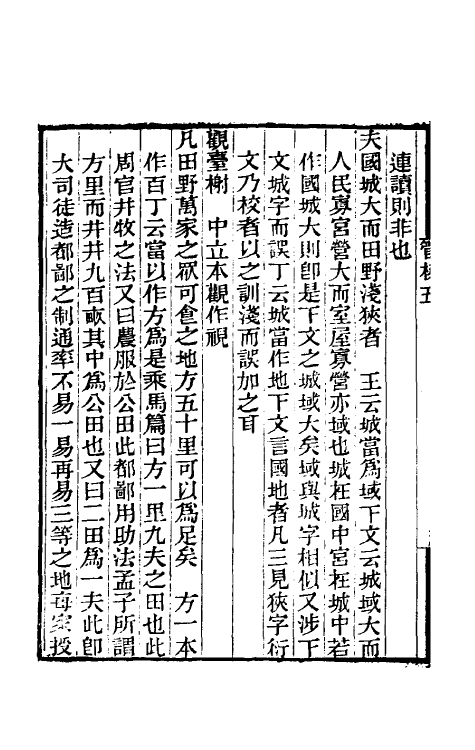 連讀則非也
夫國城大而田野淺狹者　王云城當爲域下文云城域大而
人民寡宮營大而室屋寡營亦域也城在國中宮在城中若
作國城大則卽是下文之城域大矣域與城字相似又涉下
文城字而誤丁云城當作地下文言國地者凡三見狹字衍
文乃校者以之訓淺而誤加之耳
觀臺榭　中立本觀作視
凡田野萬家之衆可食之地方五十里可以爲足矣　方一本
作百丁云當以作方爲是乘馬篇曰方一里九夫之田也此
周官井牧之法又曰農服於公田此都鄙用助法孟子所謂
方里而井井九百畞其中爲公田也又曰二田爲一夫此卽
大司徒造都鄙之制通率不易一易再易三等之地每家授
管校五